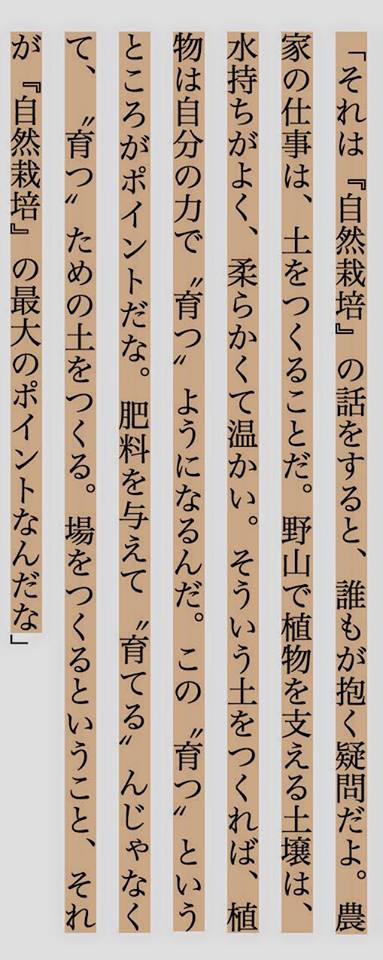 「それは『自然栽培』の話をすると、誰もが抱く疑問だよ。農
家の仕事は、土をつくることだ。野山で植物を支える土壌は、
水持ちがよく、柔らかくて温かい。そういう土をつくれば、植
物は自分の力で〝育つ〟ようになるんだ。この〝育つ〟という
ところがポイントだな。肥料を与えて〝育てる〟んじゃなく
て、〝育つ〟ための土をつくる。場をつくるということ、それ
が『自然栽培』の最大のポイントなんだな」